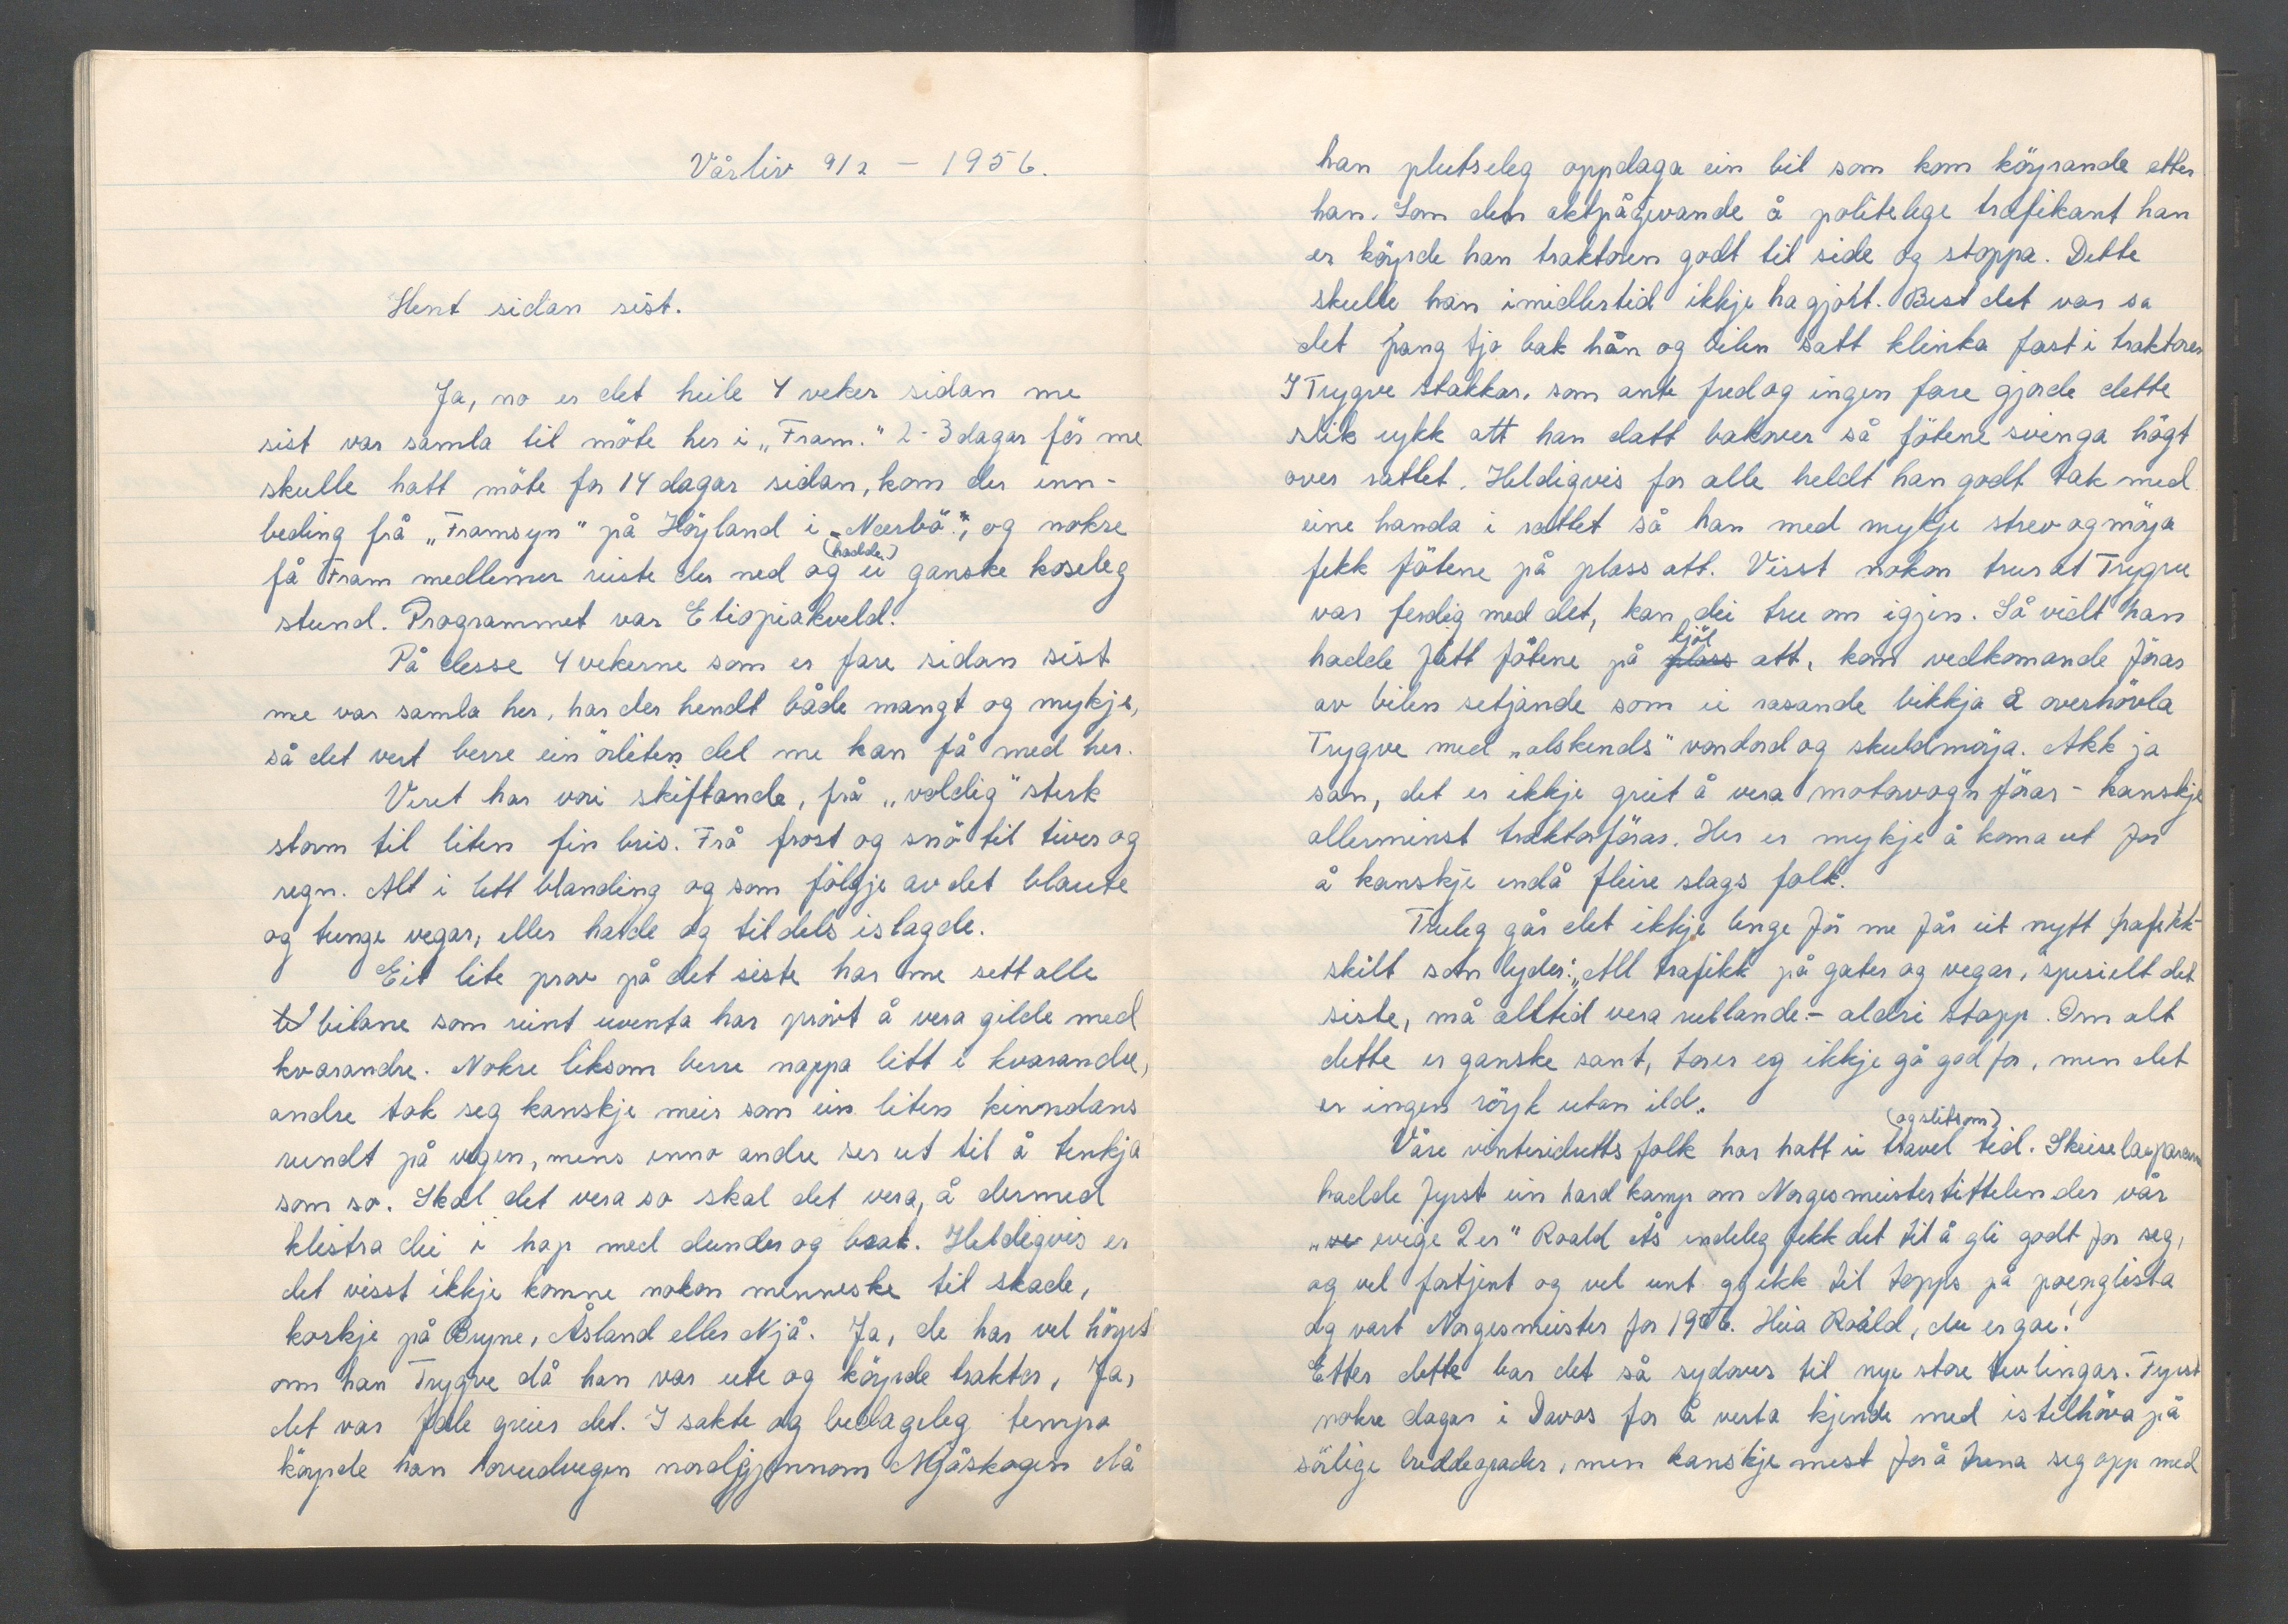 Vårliv 9/2 - 1956.
Hent sidan sist.
Ja, no er det heile 4 veker sidan me
sist var samla til möte her i „Fram." 2-3 dagar för me
skulle hatt möte for 14 dagar sidan, kom der inn-
beding frå „Framsyn" på Höyland i „Nærbö", og nokre
få Fram medlemer reiste der ned og (hadde) ei ganske koseleg
stund. Programmet var Etiopiakveld.
På desse 4 vekerne som er fare sidan sist
me var samla her, har der hendt både mangt og mykje,
så det vert berre ein örliten del me kan få med her.
Veret har vori skiftande, frå „valdig" sterk
storm til liten fin bris. Frå frost og snö til tiver og
regn. Alt i lett blanding og som fölgje av det blaute
og tunge vegar, eller harde og tildels islagde.
Eit lite prov på det siste har me sett alle
bilane som reint uventa har prövt å vera gilde med
kvarandre. Nokre liksom berre nappa litt i kvarandre,
andre tok seg kanskje meir som ein liten kinndans
rundt på vegen, mens enno andre ser ut til å tenkja
som so. Skal det vera so skal det vera, å dermed
klistra dei i hop med dunder og brak. Heldigvis er
det visst ikkje komne nokon menneske til skade,
korkje på Bryne, Åsland eller Njå. Ja, de har vel höyrt
om han Trygve då han var ute og köyrde traktor, Ja,
det var fale greier det. I sakte og bedageleg tempo
köyrde han hovudvegen nordigjennom Njåskogen då
han plutseleg oppdaga ein bil som kom köyrande etter
han. Som den aktpågjevande å politelege trafikant han
er köyrde han traktoren godt til side og stoppa. Dette
skulle han imidlertid ikkje ha gjort. Best det var sa
det pang tjo bak han og bilen satt klinka fast i traktoren
I Trygve stakkar, som ante fred og ingen fare gjorde dette
slik rykk att han datt bakover så fötene svinga högt
over rattet. Heldigvis for alle heldt han godt tak med
eine handa i rattet så han med mykje strev og möya
fekk fötene på plass att. Visst nokon trur at Trygve
var ferdig med det, kan dei tru om igjen. Så vidt han
hadde fått fötene på plass kjöl att, kom vedkomande förar
av bilen setjande som ei rasande bikkja å overhövla
Trygve med „alskends" vondord og skuldmöya. Akk ja
san, det er ikkje greit å vera motorvogn förar - kanskje
allerminst traktorförar. Her er mykje å koma ut for
å kanskje endå fleire slags folk.
Truleg går det ikkje lenge för me får eit nytt trafikk-
skilt som lyder: „All trafikk på gater og vegar, spesielt det
siste, må alltid vera rullande. - aldri stopp. Om alt
dette er ganske sant, torer eg ikkje gå god for, men det
er ingen röyk utan ild.
Våre vinteridretts folk har hatt ei travel (og slitsom) tid. Skeiseløparane
hadde fyrst ein hard kamp om Norgesmeistertittelen der vår
„ve evige 2er" Roald Ås endeleg fekk det til å gli godt for seg,
og vel fortjent og vel unt ggikk til topps på poenglista
og vart Norgesmeister for 1956. Heia Roald, du er goe!
Etter dette bar det så sydover til nye store tevlingar. Fyrst
nokre dagar i Davos for å verta kjende med istilhöva på
sörlige breddegrader, men kanskje mest for å trena seg opp med